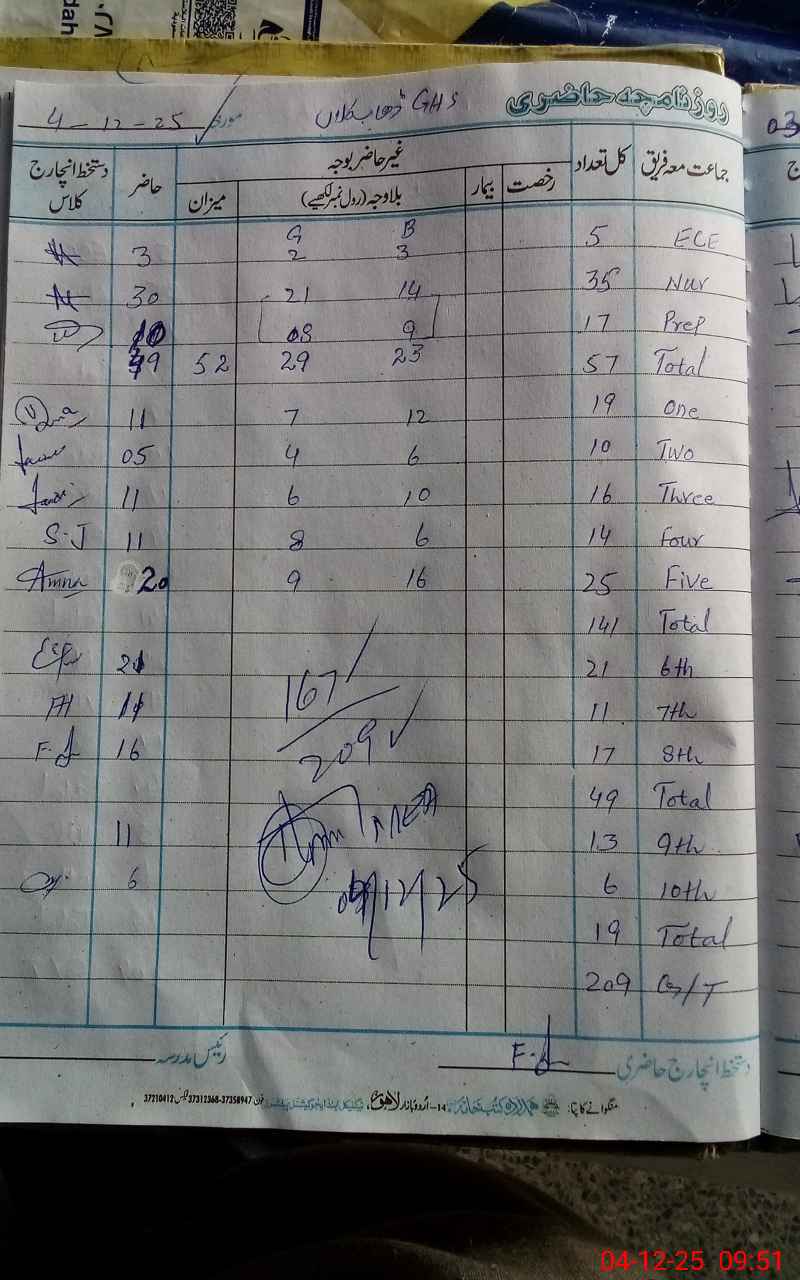 روزنامچہ حاضری
GHS ڈھاب کلاں
مورخہ 4-12-25
جماعت معہ فریق کل تعداد غیر حاضر بوجہ حاضر دستخط انچارج کلاس
رخصت بیمار بلاوجہ (رول نمبر لکھیے) میزان
B G
ECE 5 3 2 3
Nur 35 14 21 30
Prep 17 9 08 10
Total 57 23 29 52
one 19 12 7 11
Two 10 6 4 05
Three 16 10 6 11
Four 14 6 8 11 S.J
Five 25 16 9 20 Amna
Total 141
6th 21 21
7th 11 11
8th 17 16
167
209
Total 49
9th 13 11
10th 6 6
12/25
Total 19
G/T 209
دستخط انچارج حاضری
رئیس مدرسہ
منگوانے کا پتہ: ہمدرد کتب خانہ 14-اُردو بازار لاہور
فون 37358947-37312368 فیکس 37210412
03
04-12-25 09:51